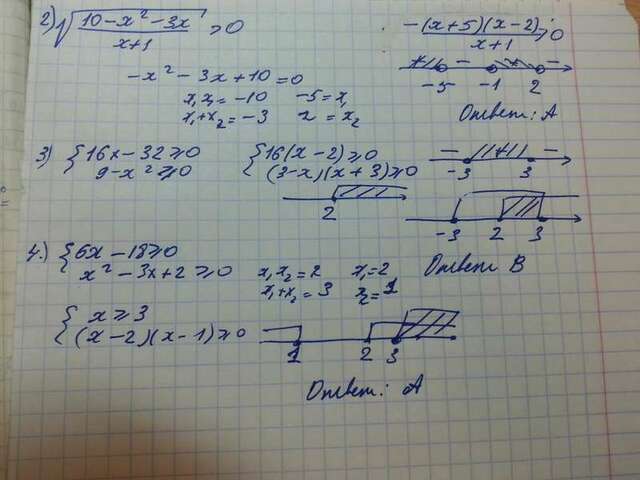 2) √((10-x²-3x)/(x+1)) ≥ 0
-(x+5)(x-2)/(x+1) ≥ 0
-x² - 3x + 10 = 0
x₁x₂ = -10   -5 = x₁
x₁+x₂ = -3   2 = x₂
+ - + -
-5 -1 2
Ответ: А
3) { 16x - 32 ≥ 0
9 - x² ≥ 0
{ 16(x-2) ≥ 0
(3-x)(x+3) ≥ 0
2
- + -
-3 3
-3 2 3
Ответ В
4.) { 6x - 18 ≥ 0
x² - 3x + 2 ≥ 0
x₁x₂ = 2   x₁ = 2
x₁+x₂ = 3   x₂ = 1
{ x ≥ 3
(x-2)(x-1) ≥ 0
1 2 3
Ответ: А